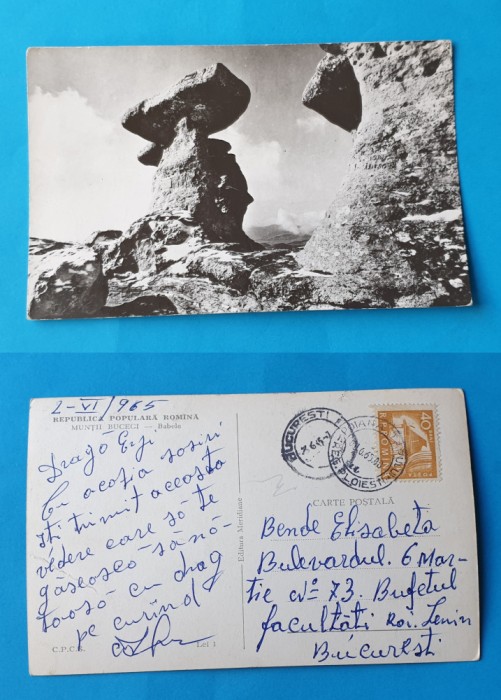 2-VI/965
REPUBLICA POPULARĂ ROMÎNĂ
MUNȚII BUCEGI — Babele
Dragă
Cu acoția sosiri
îți trimit aceasta
vedere care să te
găsesco-sănă-
toosă-cu drag
pe curînd
C.P.C.S. Lei 1
Editura Meridiane
BUCUREȘTI
PLOIEȘTI
40
CARTE POSTALĂ
Bende Elisabeta
Bulevardul. 6 Mar-
tie No 73. Bufetul
facultăti Roi. Lenin
București